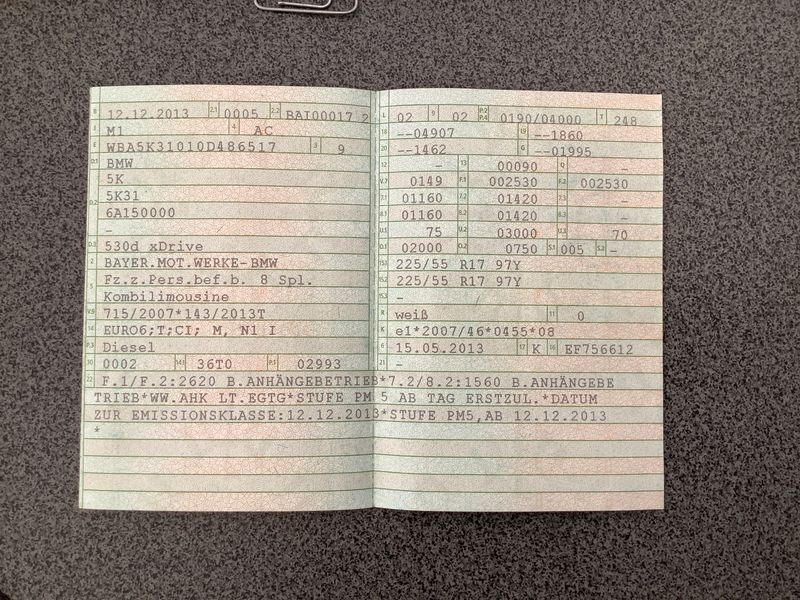 B 12.12.2013 2.1 0005 2.2 BAI00017 2
J M1 4 AC
E WBA5K31010D486517 3 9
D.1 BMW
5K
D.2 5K31
6A150000
–
D.3 530d xDrive
2 BAYER.MOT.WERKE-BMW
5 Fz.z.Pers.bef.b. 8 Spl.
Kombilimousine
V.9 715/2007*143/2013T
14 EURO6;T;CI; M, N1 I
P.3 Diesel
10 0002 14.1 36T0 P.1 02993
L 02 9 02 P.2 P.4 0190/04000 T 248
18 --04907 19 --1860
20 --1462 G --01995
12 – 13 00090 Q –
V.7 0149 F.1 002530 F.2 002530
7.1 01160 7.2 01420 7.3 –
8.1 01160 8.2 01420 8.3 –
U.1 75 U.2 03000 U.3 70
O.1 02000 O.2 0750 S.1 005 S.2 –
15.1 225/55 R17 97Y
15.2 225/55 R17 97Y
15.3 –
R weiß 11 0
K e1*2007/46*0455*08
6 15.05.2013 17 K 16 EF756612
21 –
22 F.1/F.2:2620 B.ANHÄNGEBETRIEB*7.2/8.2:1560 B.ANHÄNGEBE
TRIEB*WW.AHK LT.EGTG*STUFE PM 5 AB TAG ERSTZUL.*DATUM
ZUR EMISSIONSKLASSE:12.12.2013*STUFE PM5,AB 12.12.2013
*